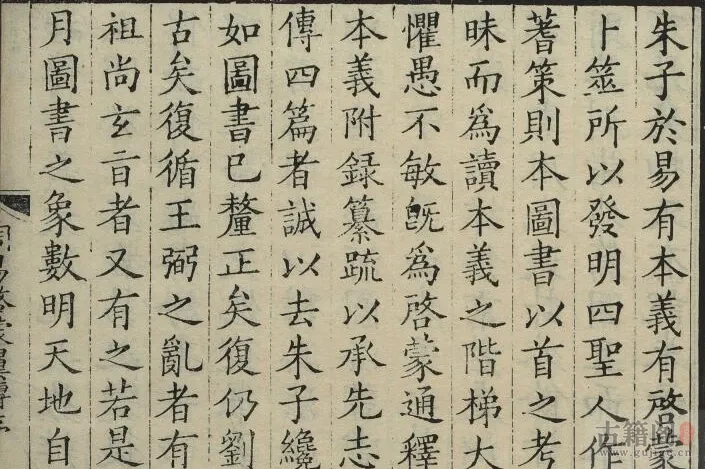 朱子於易有本義有啓蒙
卜筮所以發明四聖人作
蓍策則本圖書以首之考
昧而為讀本義之階梯大
懼愚不敏旣為啓蒙通釋
本義附録纂疏以承先志
傳四篇者誠以去朱子纔
如圖書已釐正矣復仍劉
古矣復循王弼之亂者有
祖尚玄旨者又有之若是
月圖書之象數明天地自
古籍网
www.gujice.cn